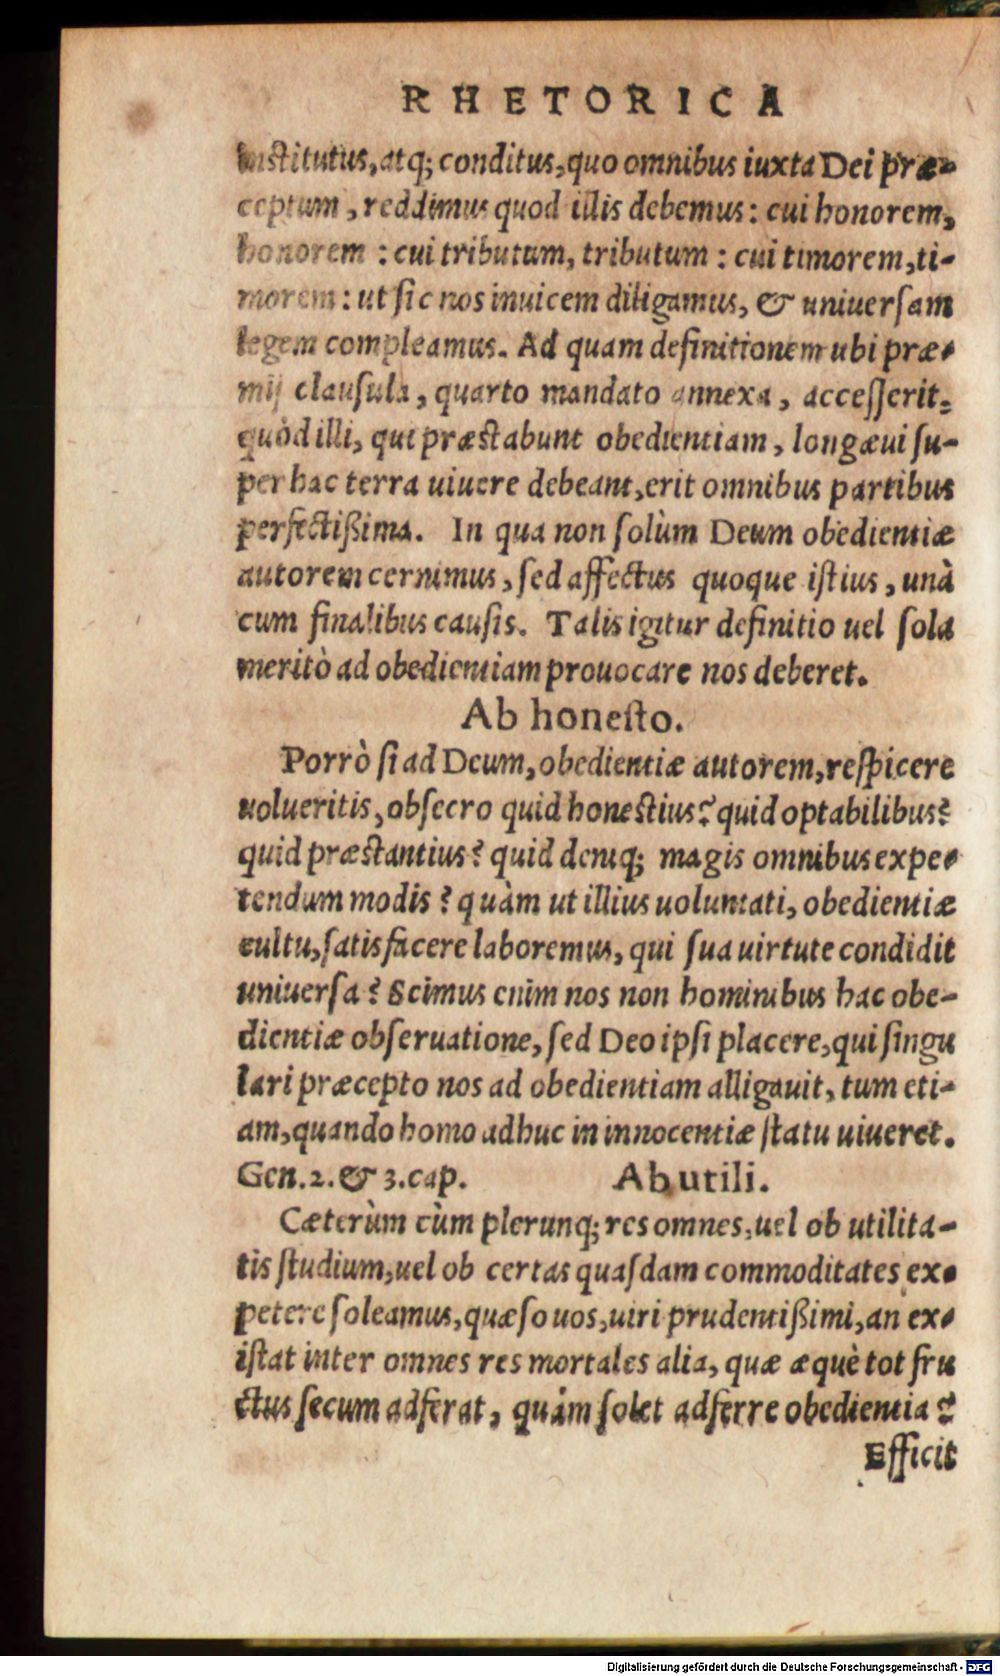 RHETORICA
institutus, atq; conditus, quo omnibus iuxta Dei præ-
ceptum, reddimus quod illis debemus: cui honorem,
honorem: cui tributum, tributum: cui timorem, ti-
morem: ut sic nos inuicem diligamus, & uniuersam
legem compleamus. Ad quam definitionem ubi præ-
mij clausula, quarto mandato annexa, accesserit,
quòd illi, qui præstabunt obedientiam, longæui su-
per hac terra uiuere debeant, erit omnibus partibus
perfectißima. In qua non solùm Deum obedientiæ
autorem cernimus, sed affectus quoque istius, unà
cum finalibus causis. Talis igitur definitio uel sola
meritò ad obedientiam prouocare nos deberet.
Ab honesto.
Porrò si ad Deum, obedientiæ autorem, respicere
uolueritis, obsecro quid honestius? quid optabilibus?
quid præstantius? quid deniq; magis omnibus expe-
tendum modis? quàm ut illius uoluntati, obedientiæ
cultu, satisfacere laboremus, qui sua uirtute condidit
uniuersa? Scimus enim nos non hominibus hac obe-
dientiæ obseruatione, sed Deo ipsi placere, qui singu
lari præcepto nos ad obedientiam alligauit, tum eti-
am, quando homo adhuc in innocentiæ statu uiueret.
Gen. 2. & 3. cap. Ab utili.
Cæterùm cùm plerunq; res omnes, uel ob utilita-
tis studium, uel ob certas quasdam commoditates ex-
petere soleamus, quæso uos, uiri prudentißimi, an ex-
istat inter omnes res mortales alia, quæ æquè tot fru
ctus secum adferat, quàm solet adferre obedientia?
Efficit
Digitalisierung gefördert durch die Deutsche Forschungsgemeinschaft - DFG